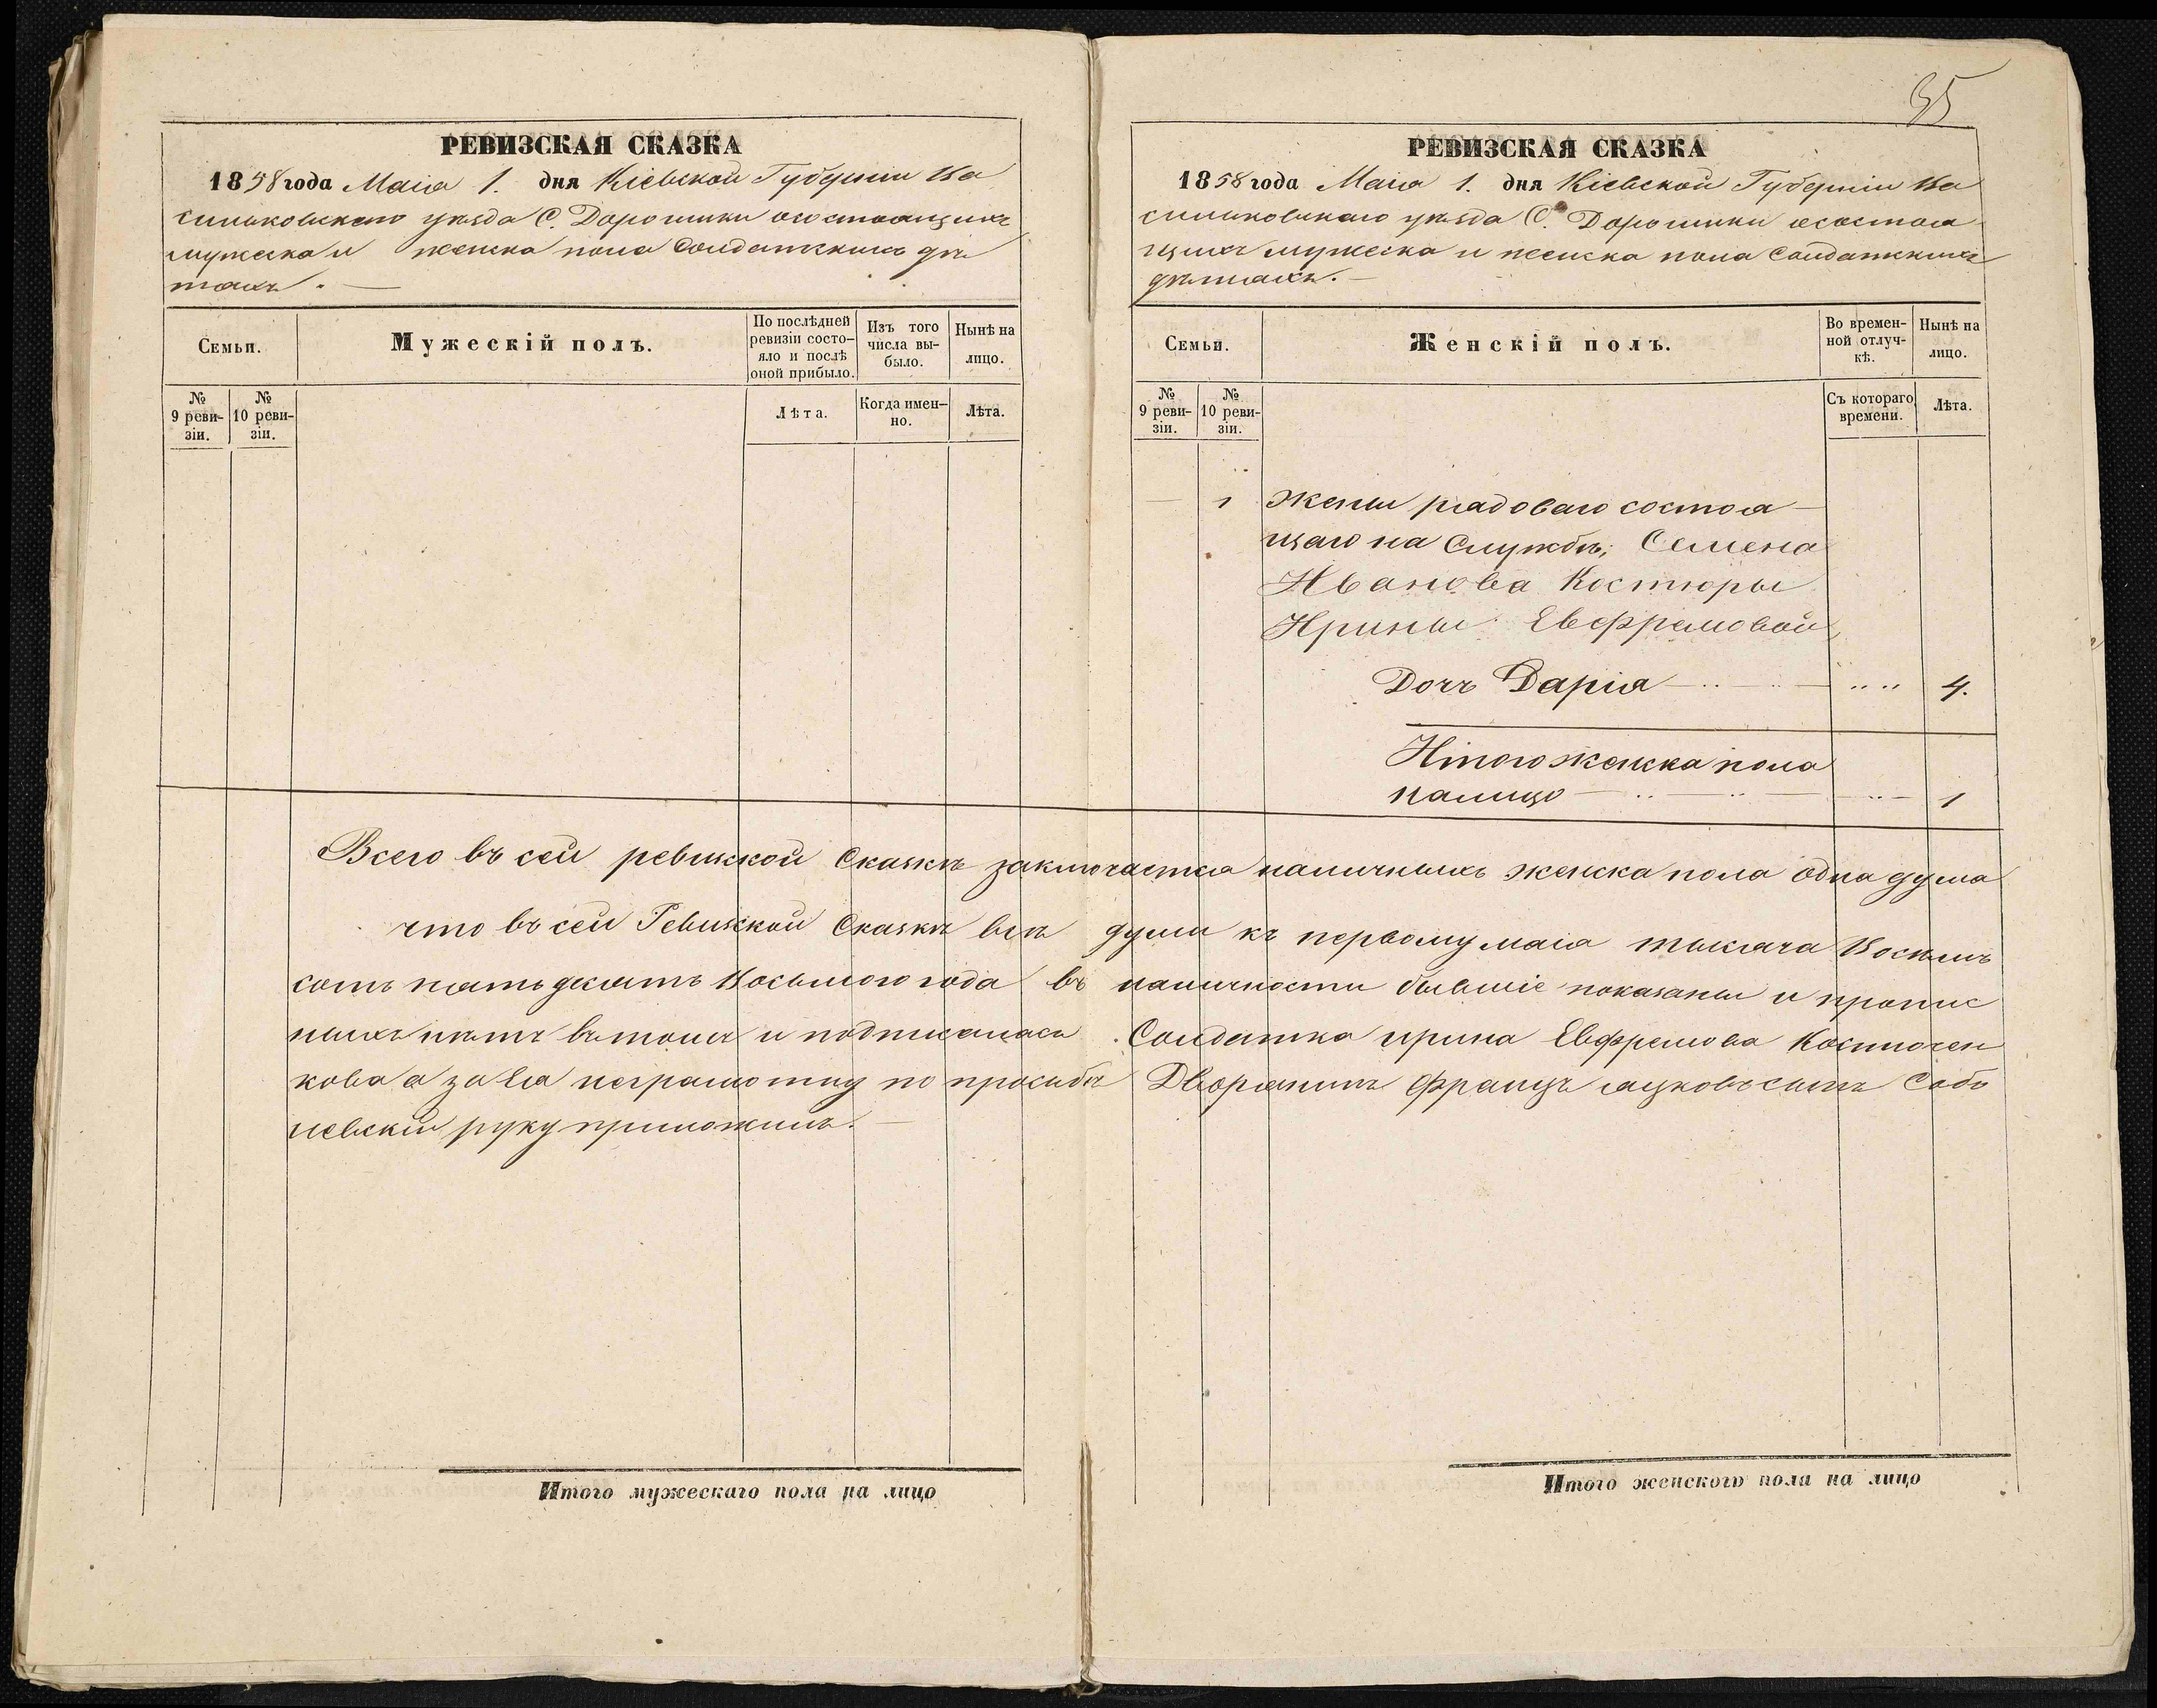 35
РЕВИЗСКАЯ СКАЗКА
1858 года Маія 1. дня Кіевской Губерніи Ва
сильковскаго уѣзда С. Дорошики осостоящихъ
мужеска и женска пола Солдатскихъ дѣ
тяхъ. —
Семьи.
Мужескій полъ.
По послѣдней
ревизіи состо-
яло и послѣ
оной прибыло.
Изъ того
числа вы-
было.
Нынѣ на
лицо.
№
9 реви-
зіи.
№
10 реви-
зіи.
Лѣта.
Когда имен-
но.
Лѣта.
РЕВИЗСКАЯ СКАЗКА
1858 года Маія 1. дня Кіевской Губерніи Ва
сильковскаго уѣзда С. Дорошики осостоя
щихъ мужеска и женска пола Солдатскихъ
дѣтяхъ. —
Семьи.
Женскій полъ.
Во времен-
ной отлуч-
кѣ.
Нынѣ на
лицо.
№
9 реви-
зіи.
№
10 реви-
зіи.
Съ котораго
времени.
Лѣта.
— 1 Жены рядоваго состоя —
щаго на Службѣ; Семена
Иванова Костюры
Ирины Евфремовой
Дочъ Дарія — 4.
Итого женска пола
налицо — 1
Всего въ сей ревизской Сказкѣ заключается наличныхъ женска пола одна душа
что въ сей Ревизской Сказкѣ всѣ души къ первому маія тысяча Восемь
сотъ пять десятъ Восьмого года въ наличности бывшіе показаны и пропис
ныхъ нѣтъ въ томъ и подписалась. Солдатка ирина Евфремова Костючен
кова а за Ея неграмотну по просьбѣ Дворянинъ Францъ сынъ Собо
левскій руку приложилъ. —
Итого мужескаго пола на лицо
Итого женскаго пола на лицо